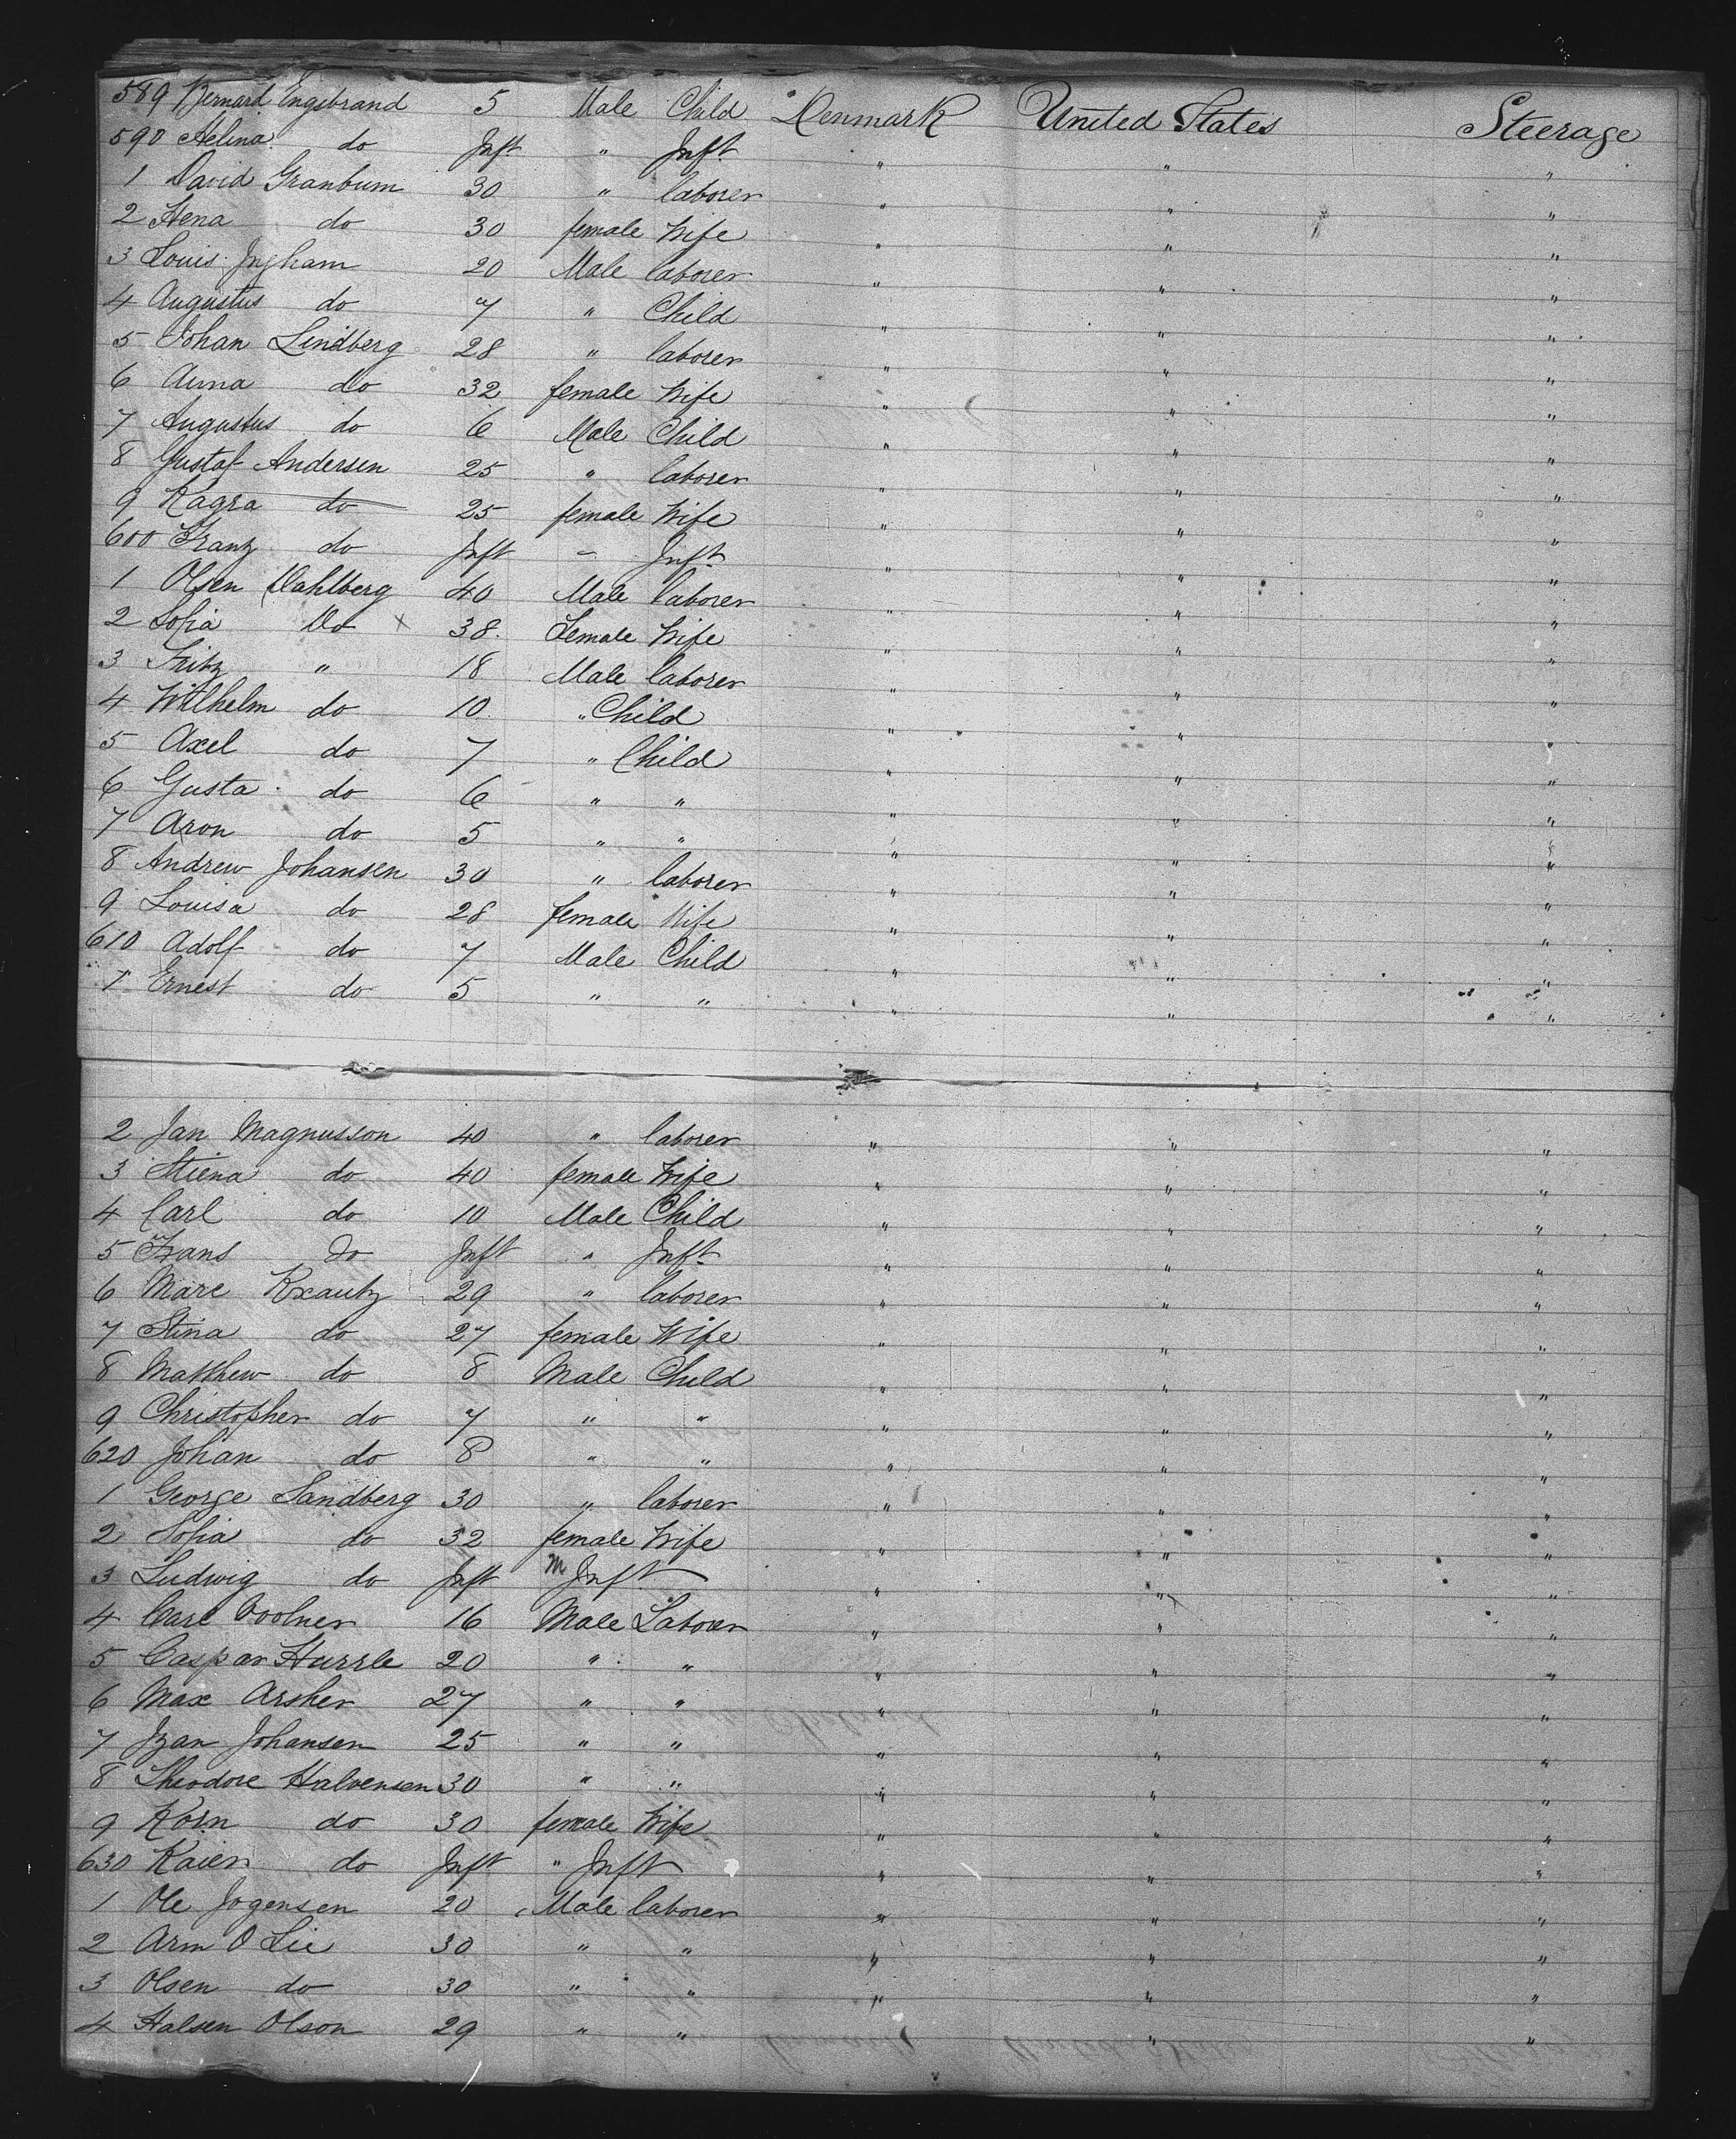 589 Bernard Engebrand 5 Male Child Denmark United States Steerage
590 Helina do Inft " Inft " " "
1 David Granbum 30 " laborer " " "
2 Hena do 30 female Wife " " "
3 Louis Ingham 20 Male laborer " " "
4 Augustus do 7 " Child " " "
5 Johan Lindberg 28 " laborer " " "
6 Anna do 32 female Wife " " "
7 Augustus do 6 Male Child " " "
8 Gustaf Andersen 25 " laborer " " "
9 Kagra do 25 female Wife " " "
600 Franz do Inft – Inft " " "
1 Olsen Dahlberg 40 Male laborer " " "
2 Sofia Do x 38. Female Wife " " "
3 Fritz " 18 Male laborer " " "
4 Wilhelm do 10 " Child " " "
5 Axel do 7 " Child " " "
6 Gusta do 6 " " " " "
7 Aron do 5 " " " " "
8 Andrew Johansen 30 " laborer " " "
9 Louisa do 28 female Wife " " "
610 Adolf do 7 Male Child " " "
1 Ernest do 5 " " " " "
2 Jan Magnusson 40 " laborer " " "
3 Stiena do 40 female Wife " " "
4 Carl do 10 Male Child " " "
5 Frans Do Inft " Inft " " "
6 Marc Krautz 29 " laborer " " "
7 Stina do 27 female Wife " " "
8 Matthew do 8 Male Child " " "
9 Christopher do 7 " " " " "
620 Johan do 8 " " " " "
1 George Sandberg 30 " laborer " " "
2 Sofia do 32 female Wife " " "
3 Ludwig do Inft M Inft " " "
4 Carl 16 Male Laborer " " "
5 Caspar Hursle 20 " " " " "
6 Max Arsher 27 " " " " "
7 Johansen 25 " " " " "
8 Theodore Halvensen 30 " " " " "
9 Korn do 30 female Wife " " "
630 Kaien do Inft " Inft " " "
1 Ole Jogensen 20 Male laborer " " "
2 Arm O Lie 30 " " " " "
3 Olsen do 30 " " " " "
4 Halsen Olson 29 " " " "